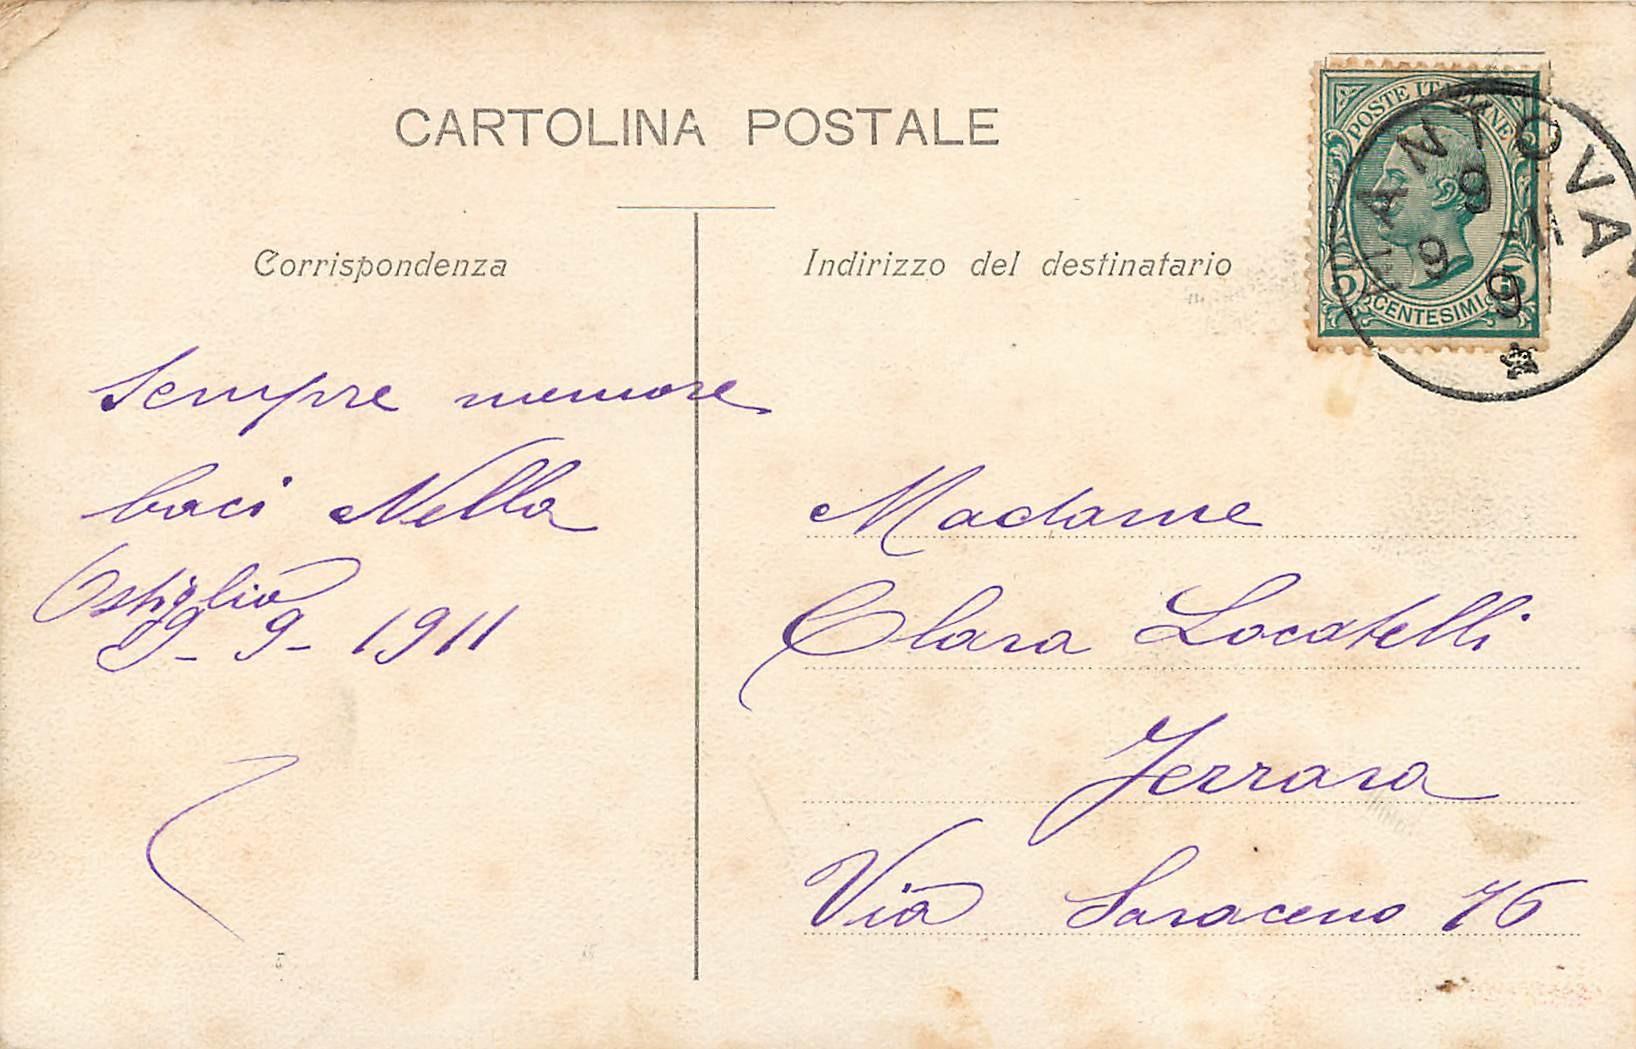 CARTOLINA POSTALE
Corrispondenza
Sempre memore
baci Nella
Ostiglia
9-9-1911
Indirizzo del destinatario
POSTE ITALIANE
5 CENTESIMI 5
MANTOVA
9
9 -11
9
Madame
Clara Locatelli
Ferrara
Via Saraceno 76